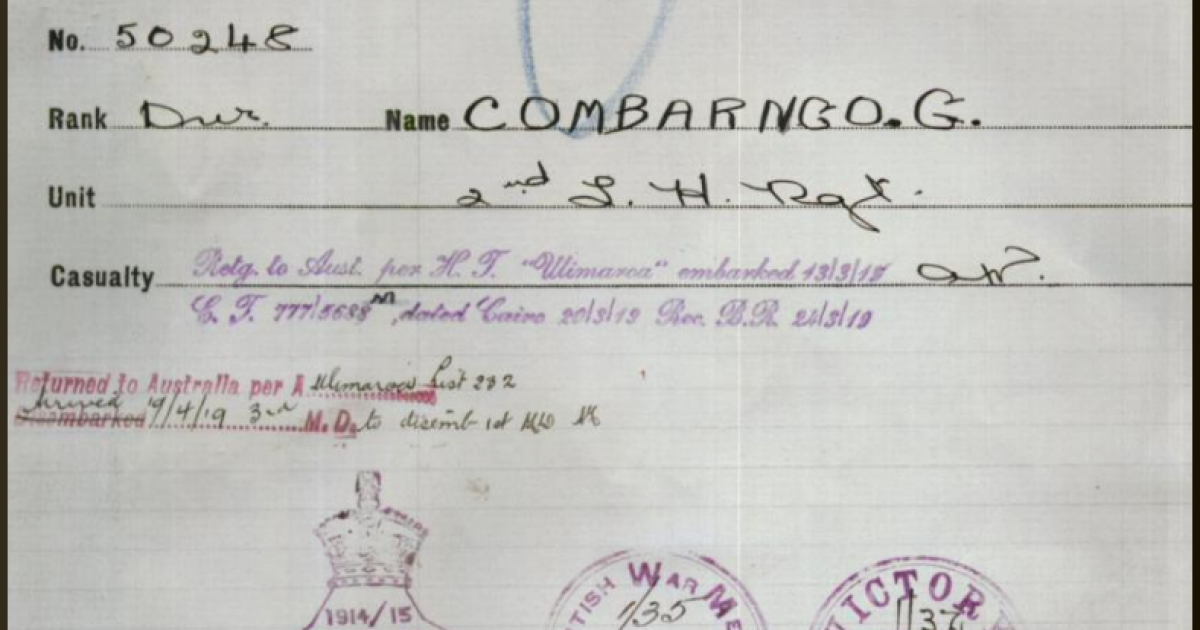 No. 50248
Rank Dvr. Name COMBARNGO. G.
Unit 2nd L. H. Rgt.
Casualty Retg. to Aust. per H. T. "Ulimaroa" embarked 13/3/19
C. F. 777/5688 M, dated Cairo 20/3/19 Rec. B.R. 24/3/19
Returned to Australia per A Ulimaroa List 282
Arrived Disembarked 19/4/19 3rd M. D. to disemb 1st MD
1914/15
TISH WAR ME
1/35
VICTOR